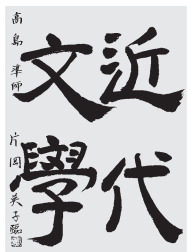 近代
文學
高島準師
片岡英子臨